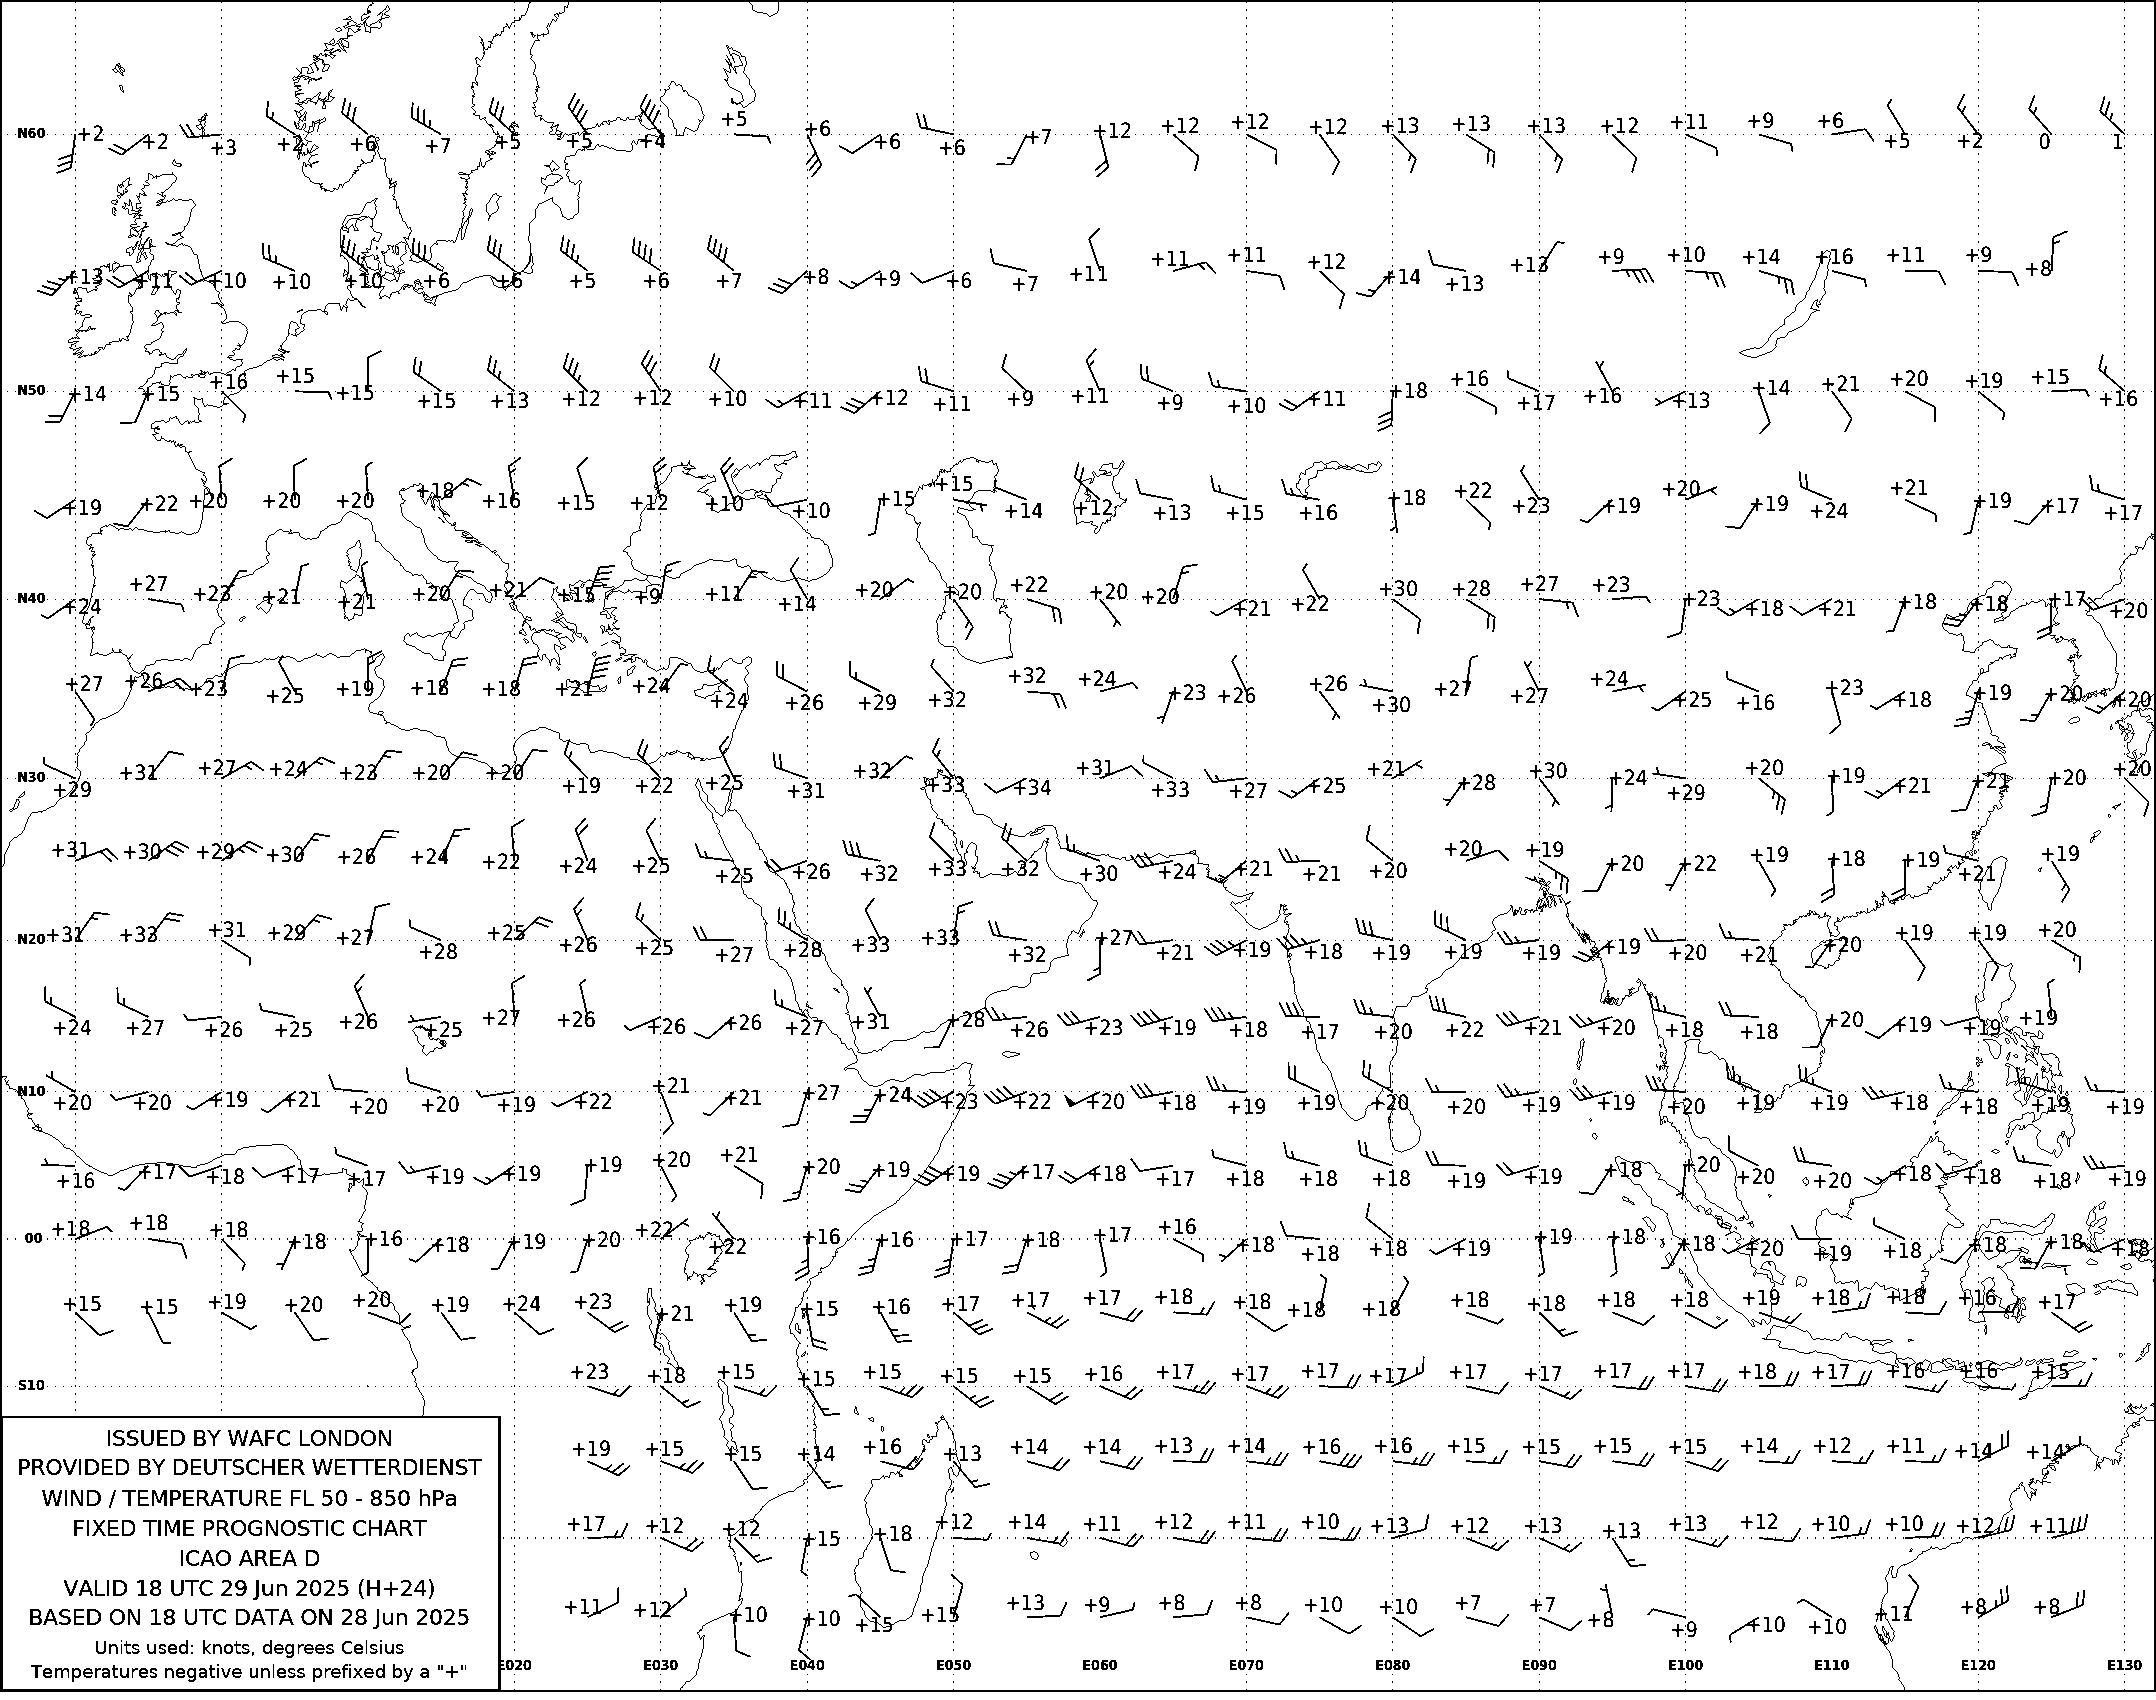 N60 +2 +2 +3 +2 +6 +7 +5 +5 +4 +5 +6 +6 +6 +7 +12 +12 +12 +12 +13 +13 +13 +12 +11 +9 +6 +5 +2 0 1
+13 +11 +10 +10 +10 +6 +6 +5 +6 +7 +8 +9 +6 +7 +11 +11 +11 +12 +14 +13 +13 +9 +10 +14 +16 +11 +9 +8
N50 +14 +15 +16 +15 +15 +15 +13 +12 +12 +10 +11 +12 +11 +9 +11 +9 +10 +11 +18 +16 +17 +16 +13 +14 +21 +20 +19 +15 +16
+19 +22 +20 +20 +20 +18 +16 +15 +12 +10 +10 +15 +15 +14 +12 +13 +15 +16 +18 +22 +23 +19 +20 +19 +24 +21 +19 +17 +17
N40 +24 +27 +23 +21 +21 +20 +21 +15 +9 +11 +14 +20 +20 +22 +20 +20 +21 +22 +30 +28 +27 +23 +23 +18 +21 +18 +18 +17 +20
+27 +26 +23 +25 +19 +18 +18 +21 +24 +24 +26 +29 +32 +32 +24 +23 +26 +26 +30 +27 +27 +24 +25 +16 +23 +18 +19 +20 +20
N30 +29 +31 +27 +24 +23 +20 +20 +19 +22 +25 +31 +32 +33 +34 +31 +33 +27 +25 +21 +28 +30 +24 +29 +20 +19 +21 +21 +20 +20
+31 +30 +29 +30 +26 +24 +22 +24 +25 +25 +26 +32 +33 +32 +30 +24 +21 +21 +20 +20 +19 +20 +22 +19 +18 +19 +21 +19
N20 +31 +33 +31 +29 +27 +28 +25 +26 +25 +27 +28 +33 +33 +32 +27 +21 +19 +18 +19 +19 +19 +19 +20 +21 +20 +19 +19 +20
+24 +27 +26 +25 +26 +25 +27 +26 +26 +26 +27 +31 +28 +26 +23 +19 +18 +17 +20 +22 +21 +20 +18 +18 +20 +19 +19 +19
N10 +20 +20 +19 +21 +20 +20 +19 +22 +21 +21 +27 +24 +23 +22 +20 +18 +19 +19 +20 +20 +19 +19 +20 +19 +19 +18 +18 +19 +19
+16 +17 +18 +17 +17 +19 +19 +19 +20 +21 +20 +19 +19 +17 +18 +17 +18 +18 +18 +19 +19 +18 +20 +20 +20 +18 +18 +18 +19
00 +18 +18 +18 +18 +16 +18 +19 +20 +22 +22 +16 +16 +17 +18 +17 +16 +18 +18 +18 +19 +19 +18 +18 +20 +19 +18 +18 +18 +18
+15 +15 +19 +20 +20 +19 +24 +23 +21 +19 +15 +16 +17 +17 +17 +18 +18 +18 +18 +18 +18 +18 +18 +19 +18 +18 +16 +17
S10 +23 +18 +15 +15 +15 +15 +15 +16 +17 +17 +17 +17 +17 +17 +17 +17 +18 +17 +16 +16 +15
+19 +15 +15 +14 +16 +13 +14 +14 +13 +14 +16 +16 +15 +15 +15 +15 +14 +12 +11 +14 +14
+17 +12 +12 +15 +18 +12 +14 +11 +12 +11 +10 +13 +12 +13 +13 +13 +12 +10 +10 +12 +11
+11 +12 +10 +10 +15 +15 +13 +9 +8 +8 +10 +10 +7 +7 +8 +9 +10 +10 +11 +8 +8
E020 E030 E040 E050 E060 E070 E080 E090 E100 E110 E120 E130
ISSUED BY WAFC LONDON
PROVIDED BY DEUTSCHER WETTERDIENST
WIND / TEMPERATURE FL 50 - 850 hPa
FIXED TIME PROGNOSTIC CHART
ICAO AREA D
VALID 18 UTC 29 Jun 2025 (H+24)
BASED ON 18 UTC DATA ON 28 Jun 2025
Units used: knots, degrees Celsius
Temperatures negative unless prefixed by a "+"